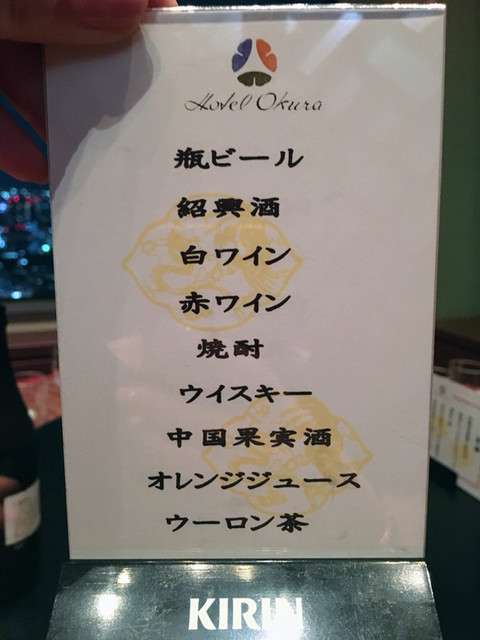 Hotel Okura
瓶ビール
紹興酒
白ワイン
赤ワイン
焼酎
ウイスキー
中国果実酒
オレンジジュース
ウーロン茶
KIRIN